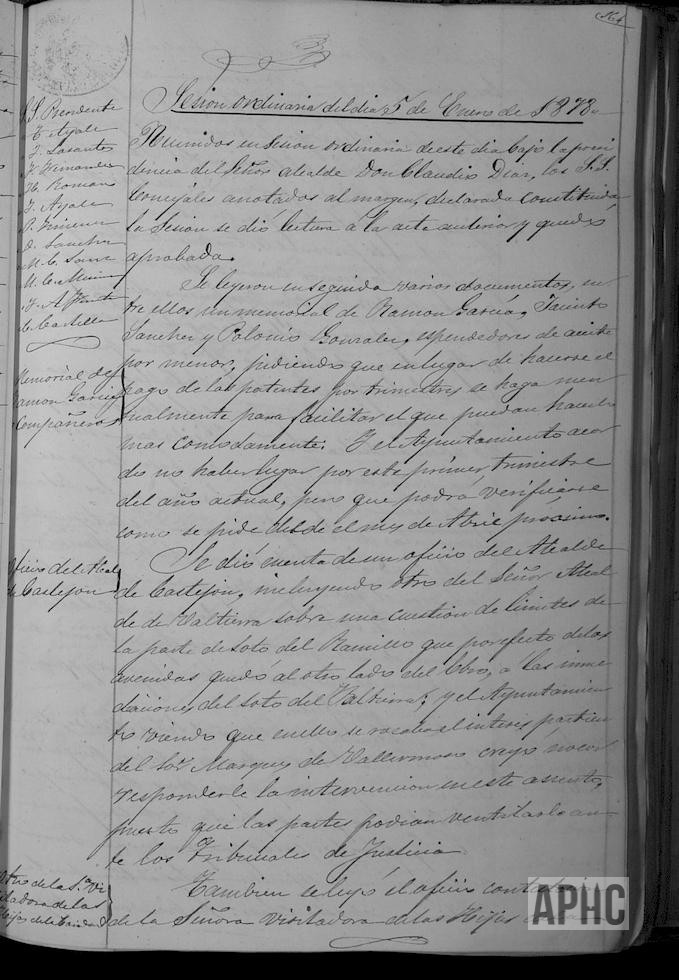 164
Sesion ordinaria del dia 5 de Enero de 1878.
S. S. Presidente
F. Ayala
J. Lasanta
F. Fernandez
H. Romano
J. Ayala
P. Jimenez
D. Sanchez
M. C. Sanz
M. C.
J. A.
C. Castilla
Reunidos en sesion ordinaria de este dia bajo la presi
dencia del Señor alcalde Don Claudio Diaz, los S.S.
Concejales anotados al margen, declarada constituida
la Sesion se dió lectura á la acta anterior y quedó
aprobada.
Memorial de
Ramon Garcia y
Compañeros
Se leyeron en seguida varios documentos, en
tre ellos un memorial de Ramon Garcia, Jacinto
Sanchez y Polonio Gonzalez, espendedores de aceite
por menor, pidiendo que en lugar de hacerse el
pago de las patentes por trimestres se haga men
sualmente para facilitar el que puedan hacerlo
mas comodamente. Y el Ayuntamiento acor
dó no haber lugar por este primer trimestre
del año actual, pero que podrá verificarse
como se pide desde el mes de Abril procsimo.
Oficio del Alcalde
de Castejon
Se dió cuenta de un oficio del Alcalde
de Castejon, incluyendo otro del Señor Alcal
de de Valtierra sobre una cuestion de limites de
la parte de soto del Ramillo que por efecto de las
avenidas quedó al otro lado del Ebro, a las inme
diaciones del soto del Valtierra; y el Ayuntamien
to viendo que en ello se rozaba el interes particu
del Sor Marques de Vallermoso creyó no cor
responderle la intervencion en este asunto,
puesto que las partes podian ventilarlo an
te los Tribunales de Justicia
Otro de la Sra. Vi
sitadora de las
Hijas de la Caridad
Tambien se leyó el oficio contestacion
de la Señora Visitadora de las Hijas de la
APHC